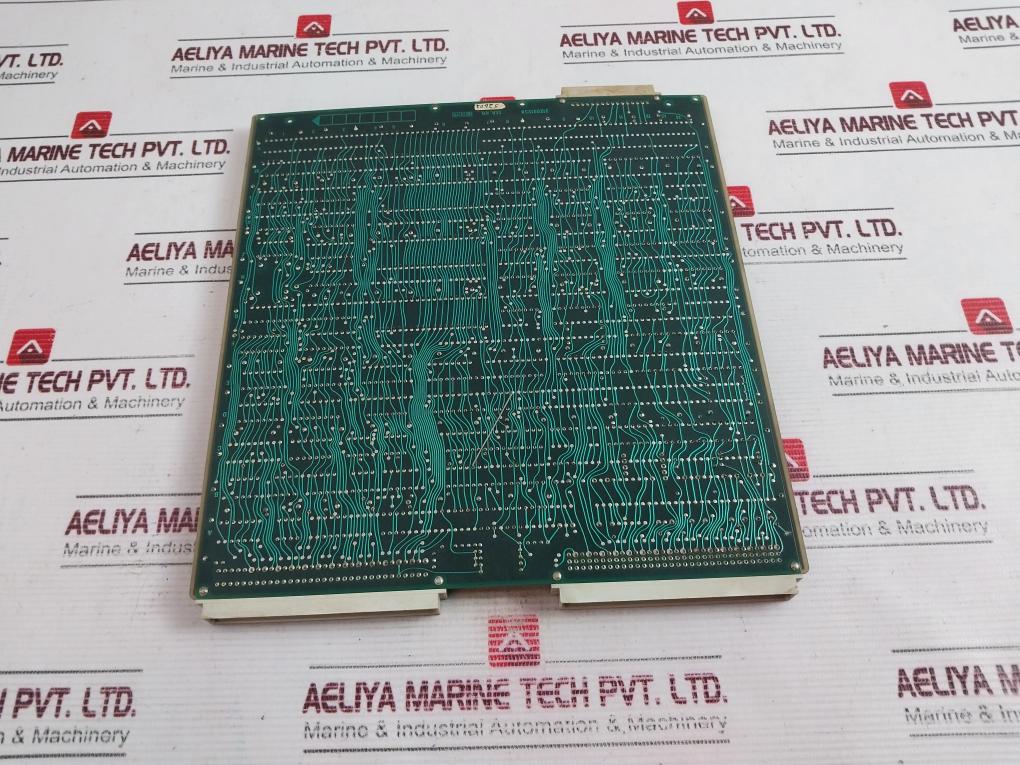 AELIYA MARINE TECH PVT. LTD.
Marine & Industrial Automation & Machinery
AELIYA MARINE TECH PVT. LTD.
Marine & Industrial Automation & Machinery
AELIYA MARIN
Marine &
MARINE TECH PVT. LTD.
Industrial Automation & Machinery
AELIYA MARINE TECH PVT. LTD.
Marine & Industrial Automation & Machinery
AELIYA MA
Marine & Indus
TECH PVT. LTD.
Automation & Machinery
NE TECH PVT. LTD.
Automation & Machinery
AELIYA MARINE TECH
Marine & Industrial Auto
AELIYA MA
Marine & Indus
TECH PVT. LTD.
Automation & Machinery
PVT. LTD.
& Machinery
AELIYA MARINE TECH PVT. LTD.
Marine & Industrial Automation & Machinery
AELIYA M
Marine & In